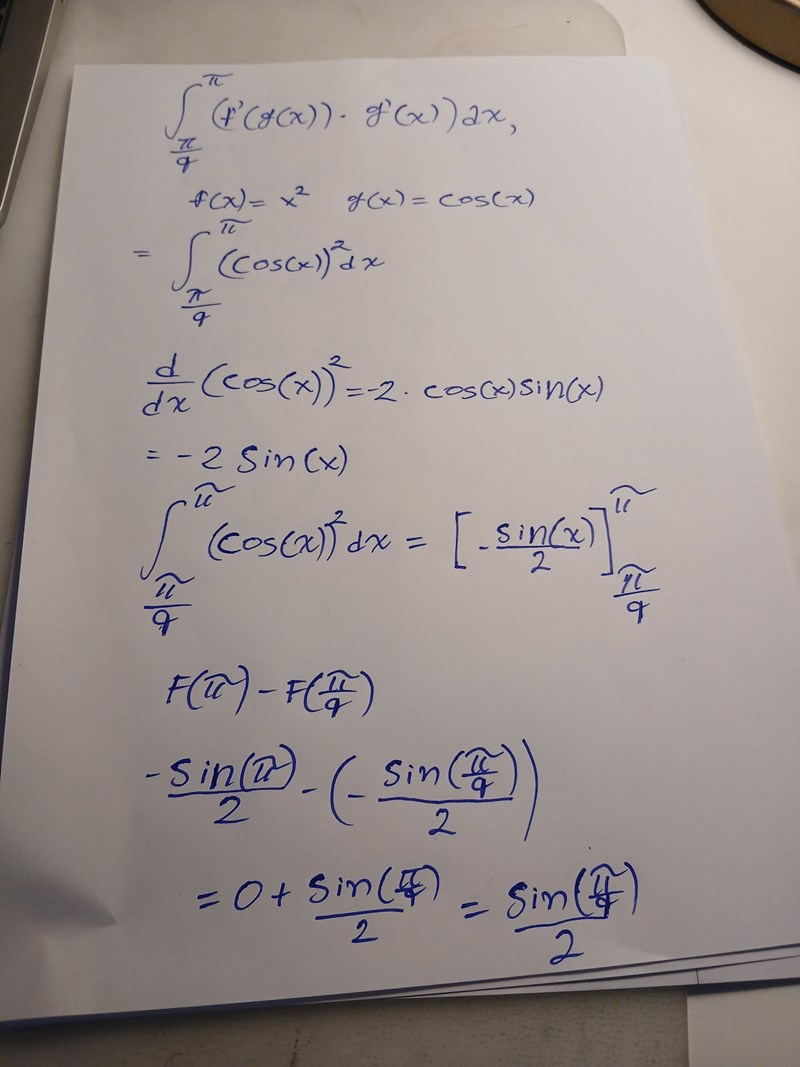 ∫_{π/9}^{π} (f'(g(x)) · g'(x)) dx,
f(x) = x² g(x) = cos(x)
= ∫_{π/9}^{π} (cos(x))² dx
d/dx (cos(x))² = -2 · cos(x) sin(x)
= -2 sin(x)
∫_{π/9}^{π} (cos(x))² dx = [-sin(x)/2]_{π/9}^{π}
F(π) - F(π/9)
-sin(π)/2 - (-sin(π/9)/2)
= 0 + sin(π/9)/2 = sin(π/9)/2